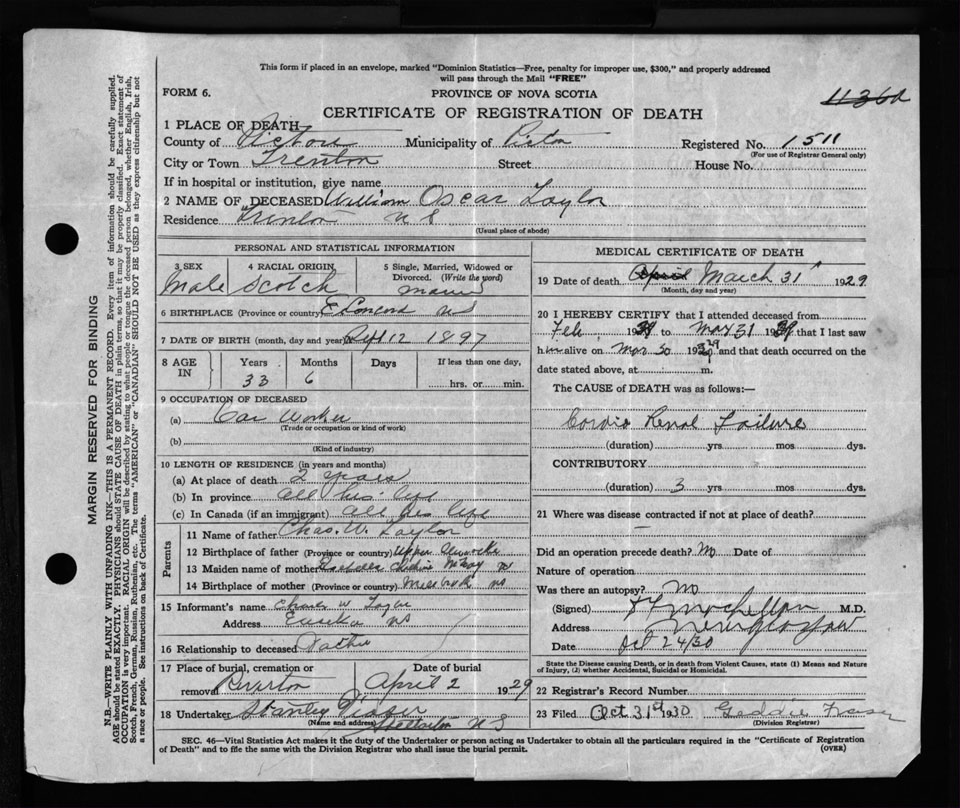 This form if placed in an envelope, marked "Dominion Statistics—Free, penalty for improper use, $300," and properly addressed
will pass through the Mail "FREE"
FORM 6.
PROVINCE OF NOVA SCOTIA
CERTIFICATE OF REGISTRATION OF DEATH
1 PLACE OF DEATH
County of Pictou Municipality of Pictou Registered No. 1511
(For use of Registrar General only)
City or Town Trenton Street House No.
If in hospital or institution, give name
2 NAME OF DECEASED William Oscar Taylor
Residence Trenton N S
(Usual place of abode)
MARGIN RESERVED FOR BINDING
N.B.—WRITE PLAINLY WITH UNFADING INK—THIS IS A PERMANENT RECORD. Every item of information should be carefully supplied.
AGE should be stated EXACTLY. PHYSICIANS should STATE CAUSE OF DEATH in plain terms, so that it may be properly classified. Exact statement of
OCCUPATION is very important. RACIAL ORIGIN will be described by stating to what people or tongue the deceased person belonged, whether English, Irish,
Scotch, French, German, Russian, Ruthenian, etc. The terms "AMERICAN" or "CANADIAN" SHOULD NOT BE USED as they express citizenship but not
a race or people. See instructions on back of Certificate.
PERSONAL AND STATISTICAL INFORMATION
3 SEX 4 RACIAL ORIGIN 5 Single, Married, Widowed or
Divorced. (Write the word)
Male Scotch
6 BIRTHPLACE (Province or country) NS
7 DATE OF BIRTH (month, day and year) Sept 12 1897
8 AGE IN Years Months Days If less than one day,
33 6 hrs. or min.
9 OCCUPATION OF DECEASED
(a) Car Worker
(Trade or occupation or kind of work)
(b)
(Kind of industry)
10 LENGTH OF RESIDENCE (in years and months)
(a) At place of death 2 years
(b) In province all his life
(c) In Canada (if an immigrant) all his life
Parents
11 Name of father Chas. W. Taylor
12 Birthplace of father (Province or country) Upper
13 Maiden name of mother McKay
14 Birthplace of mother (Province or country) NS
15 Informant's name Charles W
Address Eureka NS
16 Relationship to deceased Father
17 Place of burial, cremation or Date of burial
removal Riverton April 2 1929
18 Undertaker Stanley Fraser
(Name and address) Stellarton N S
MEDICAL CERTIFICATE OF DEATH
19 Date of death April March 31 1929
(Month, day and year)
20 I HEREBY CERTIFY that I attended deceased from
Feb 1929 to Mar 31 1929 that I last saw
him alive on Mar 30 1929 and that death occurred on the
date stated above, at m.
The CAUSE OF DEATH was as follows:—
Cardio Renal Failure
(duration) yrs mos dys.
CONTRIBUTORY
(duration) 3 yrs mos dys.
21 Where was disease contracted if not at place of death?
—
Did an operation precede death? No Date of
Nature of operation
Was there an autopsy? No
(Signed) M.D.
Address New Glasgow
Date Oct 24/30
State the Disease causing Death, or in death from Violent Causes, state (1) Means and Nature
of Injury, (2) whether Accidental, Suicidal or Homicidal.
22 Registrar's Record Number
23 Filed Oct 31st 1930 Geddie Fraser
(Division Registrar)
SEC. 46—Vital Statistics Act makes it the duty of the Undertaker or person acting as Undertaker to obtain all the particulars required in the "Certificate of Registration
of Death" and to file the same with the Division Registrar who shall issue the burial permit.
(OVER)